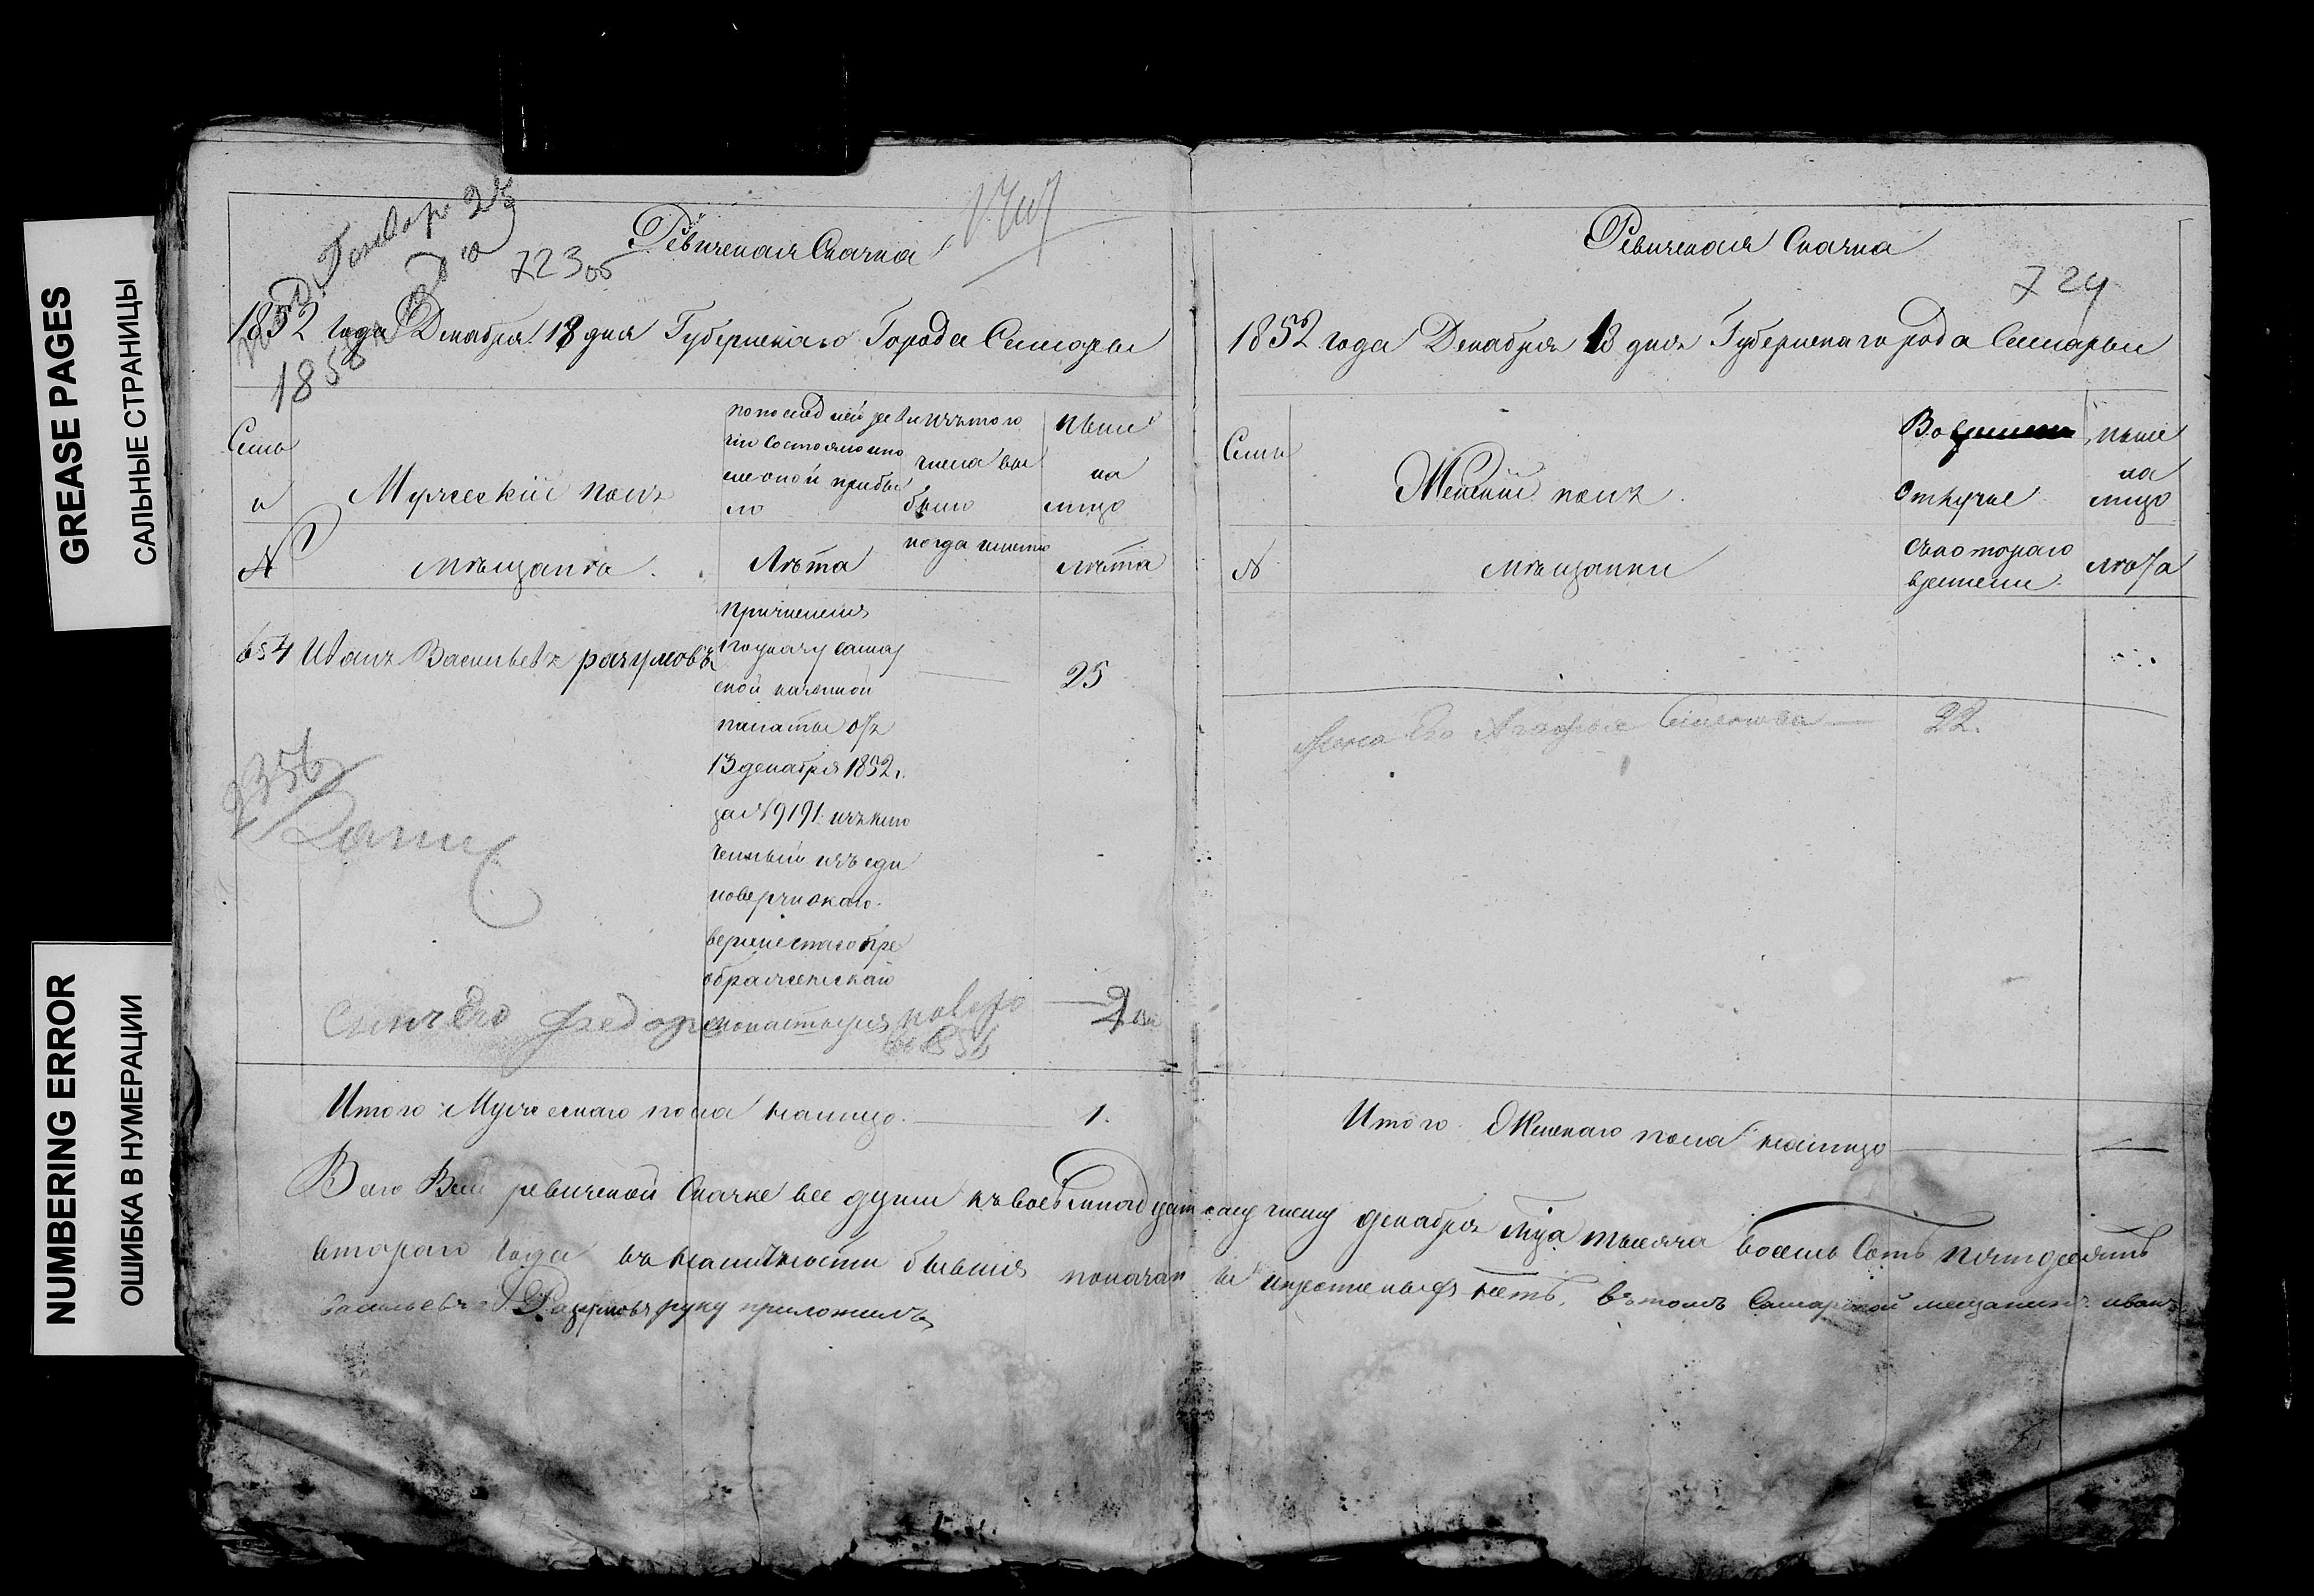 GREASE PAGES
САЛЬНЫЕ СТРАНИЦЫ
NUMBERING ERROR
ОШИБКА В НУМЕРАЦИИ
Генвар 23
723 об
Ревижская Скачка
1852 года Декабря 18 дня Губернскаго Города Самары
1858
Семьи
и
№
Мужеский полъ
мѣщанѣ
по последней ре
визіи состояло и по
сле оной прибы
ло
Лѣта
изъ того
числа вы
было
когда имѣнно
ныне
на
лицо
лѣта
654 Иванъ Васильевъ разумовъ
Причислен
по указу самар
ской казенной
палаты отъ
13 декабря 1852 г.
за № 9191 изъклю
ченный изъ еди
новерческаго
верхнеспасо пре
ображенскаго
монастыря
25
2356
Сынъ Его Федоръ
Итого Мужескаго пола налицо 1.
Ревижская Скачка
724
1852 года Декабря 18 дня Губернскаго рода Самары
Семьи
№
Женский полъ
мѣщанки
Во
отлучке
съ котораго
времени
ныне
на
лицо
лѣта
Жена Его Агафья Семенова 22.
Итого Женскаго пола налицо
Всего Въ сей ревижской Скачке все души къ восемнадцатому числу декабря 1852 тысяча восемь сотъ пятдесятъ
втораго года въ наличности бывшия показаны и прописныхъ нетъ, въ томъ Самарской мещанинъ иванъ
Васильевъ Разумовъ руку приложилъ